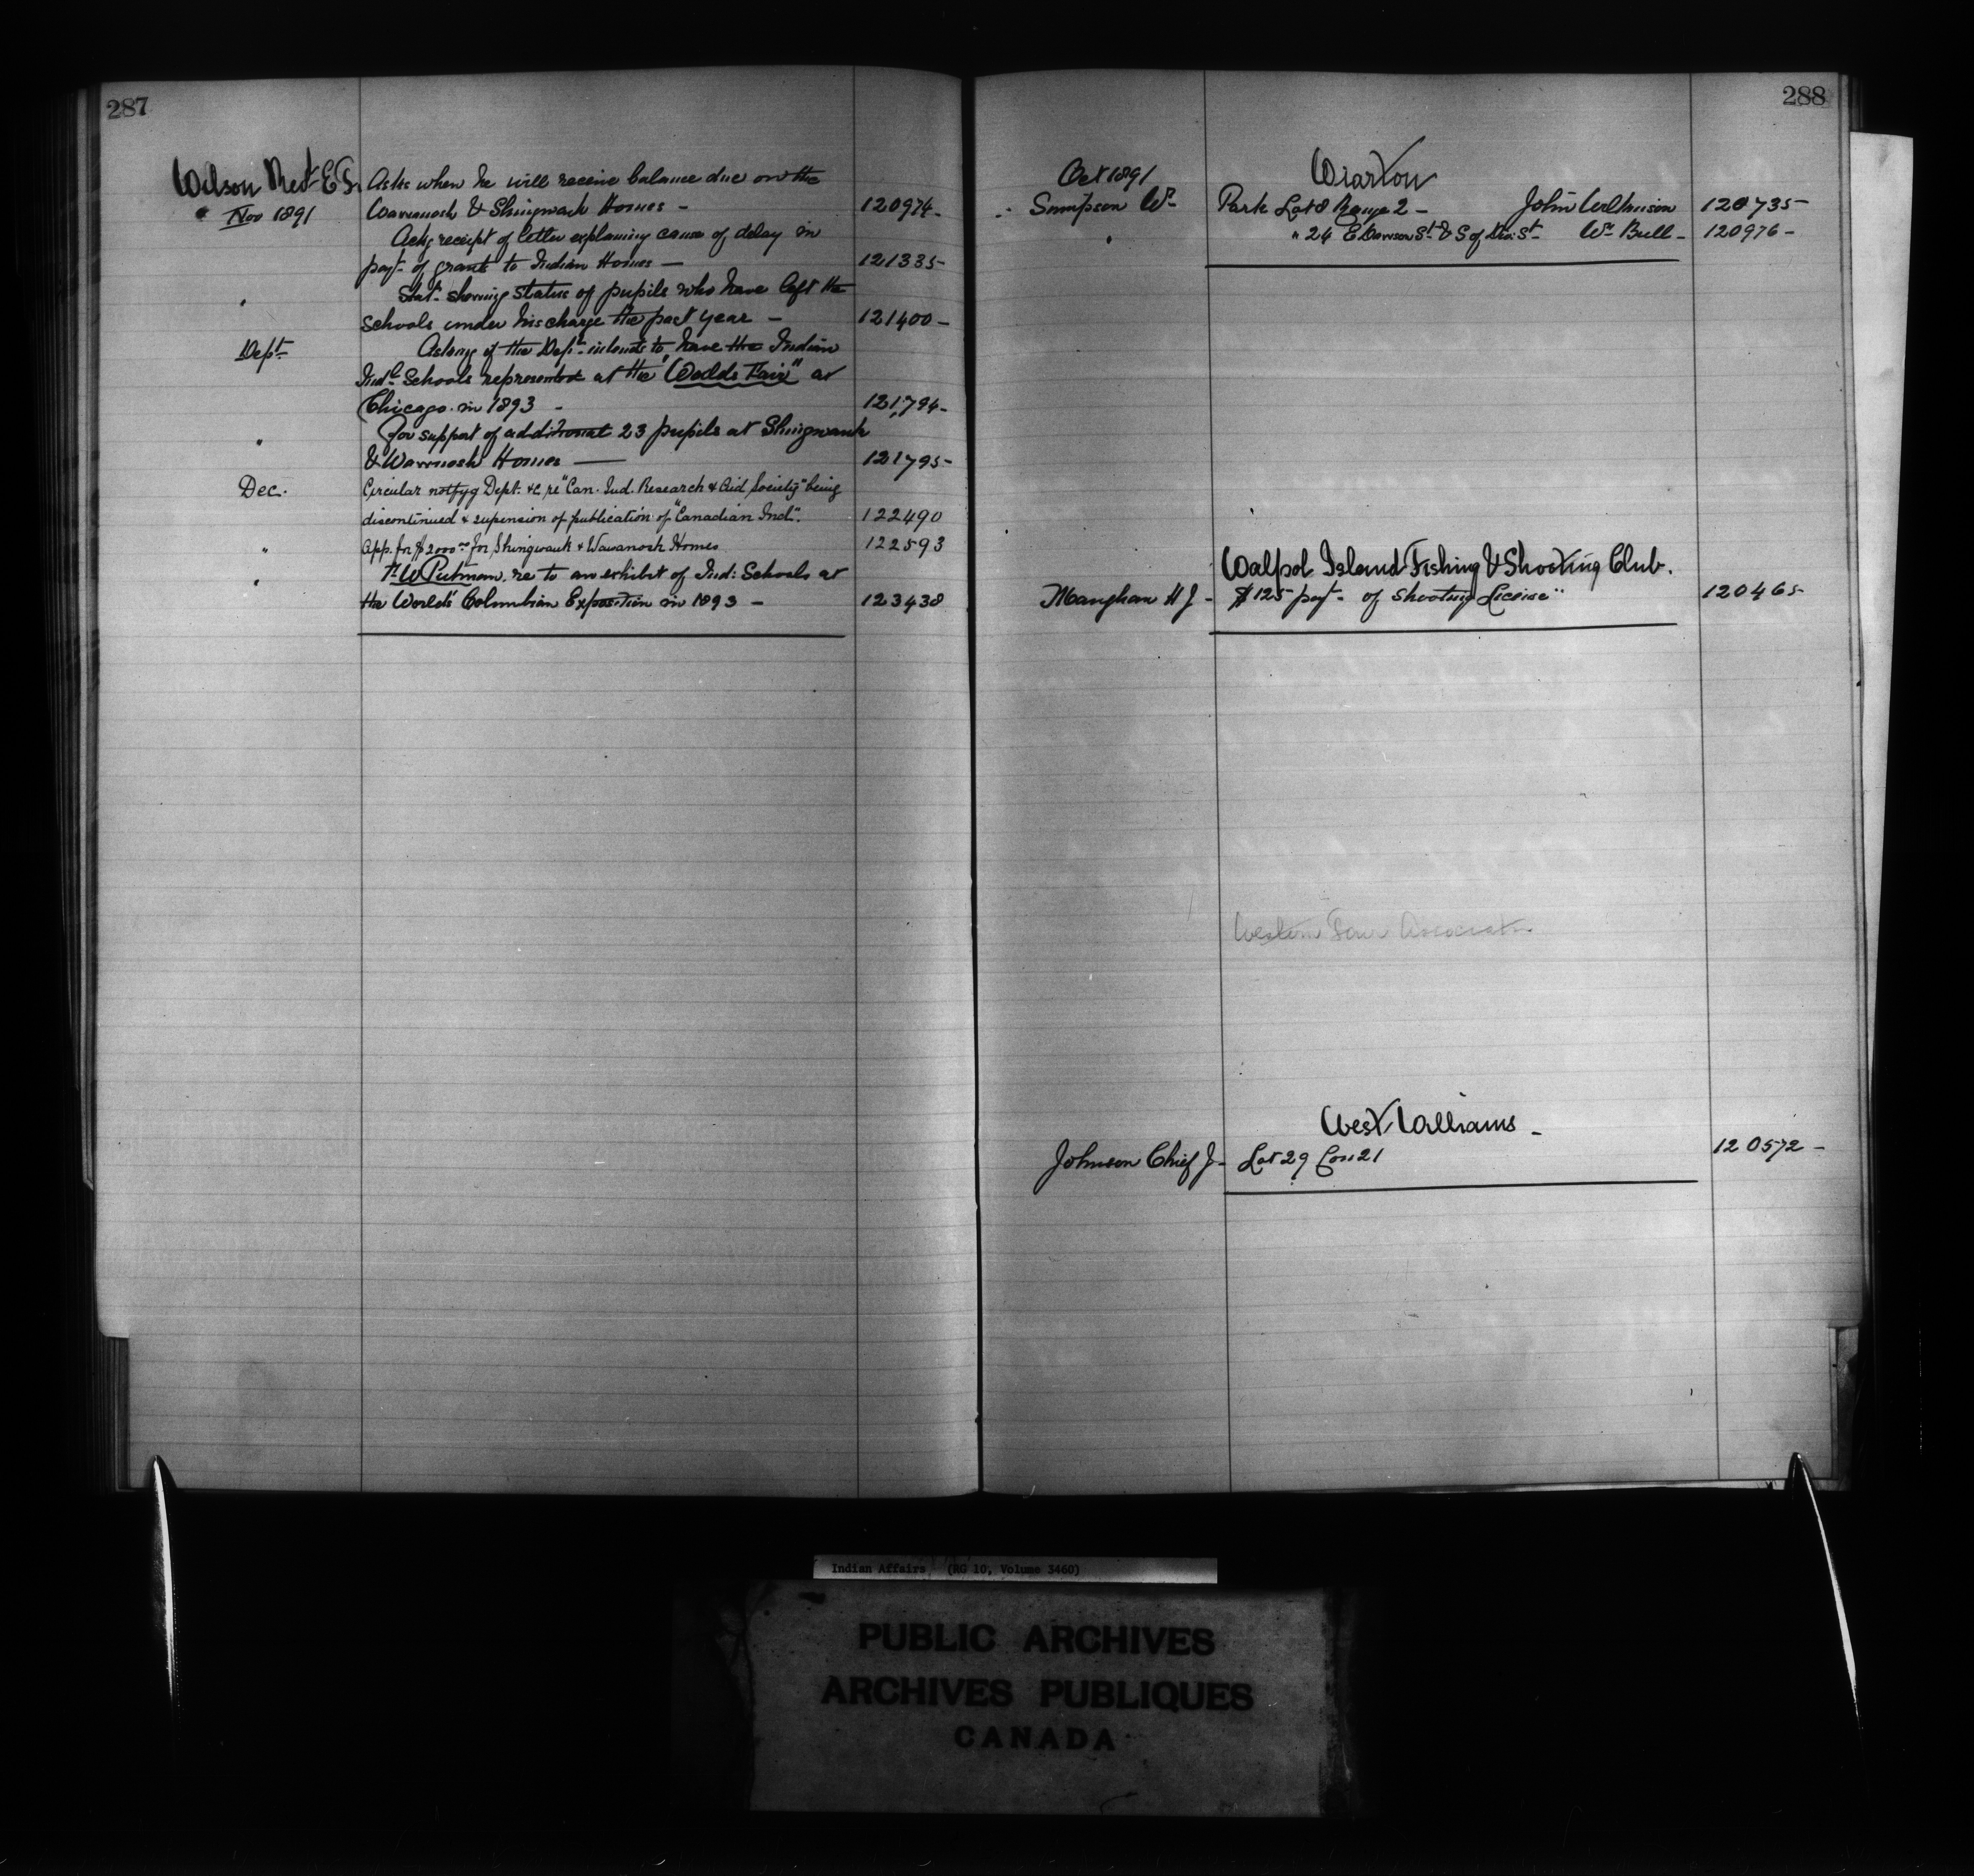 287
Wilson Revd E F. Asks when he will receive balance due on the
" Nov 1891 Wawanosh & Shingwauk Homes - 120974-
Ackg receipt of letter explaining cause of delay in
payt of grants to Indian Homes - 121335-
" Stat. showing status of pupils who have left the
schools under his charge the past year - 121400-
Dept Asking if the Dept intends to have the Indian
Indl Schools represented at the "Worlds Fair" at
Chicago in 1893 - 121,794-
" For support of additional 23 pupils at Shingwauk
& Wawanosh Homes — 121795-
Dec. Circular notfyg Dept. &c re "Can. Ind. Research & Aid Society" being
discontinued & supension of publication of "Canadian Ind".
122490
" App. for $2000.00 for Shingwauk & Wawanosh Homes 122593
" F. W Putmam re to an exhibit of Ind: Schools at
the World's Colombian Exposition in 1893 - 123438
288
Oct 1891 Wiarton
Simpson Wm Park Lot 8 Range 2 - John Wilkinson 120735-
" " 24 E Dawson St & S of Div: St Wm Bull - 120976-
Walpol Island Fishing & Shooting Club.
Mangham H J - $125 payt of Shooting License" 120465-
Western Fair Association
West Williams -
Johnson Chief J - Lot 29 Con 21 120572-
Indian Affairs (RG 10, Volume 3460)
PUBLIC ARCHIVES
ARCHIVES PUBLIQUES
CANADA